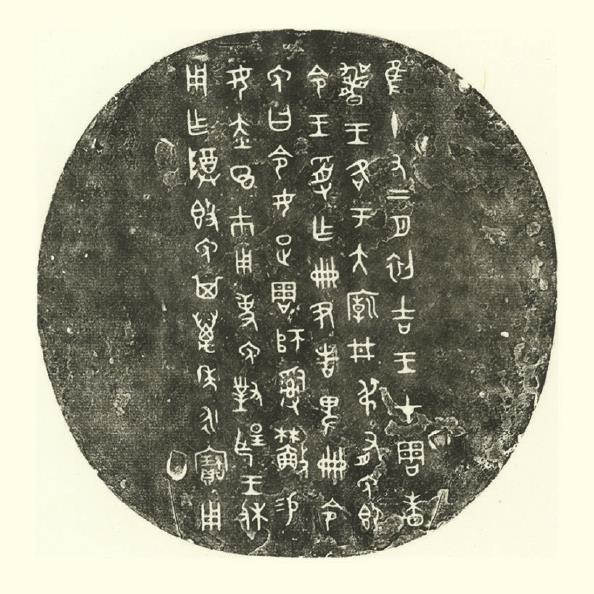 隹十又二月初吉王才周昧
爽王各于大廟井弔有免即
令王受乍冊尹者卑冊令
免曰令女疋周師𤔲易
女赤巿用事免對揚王休
用乍尊簋免其萬年永寶用